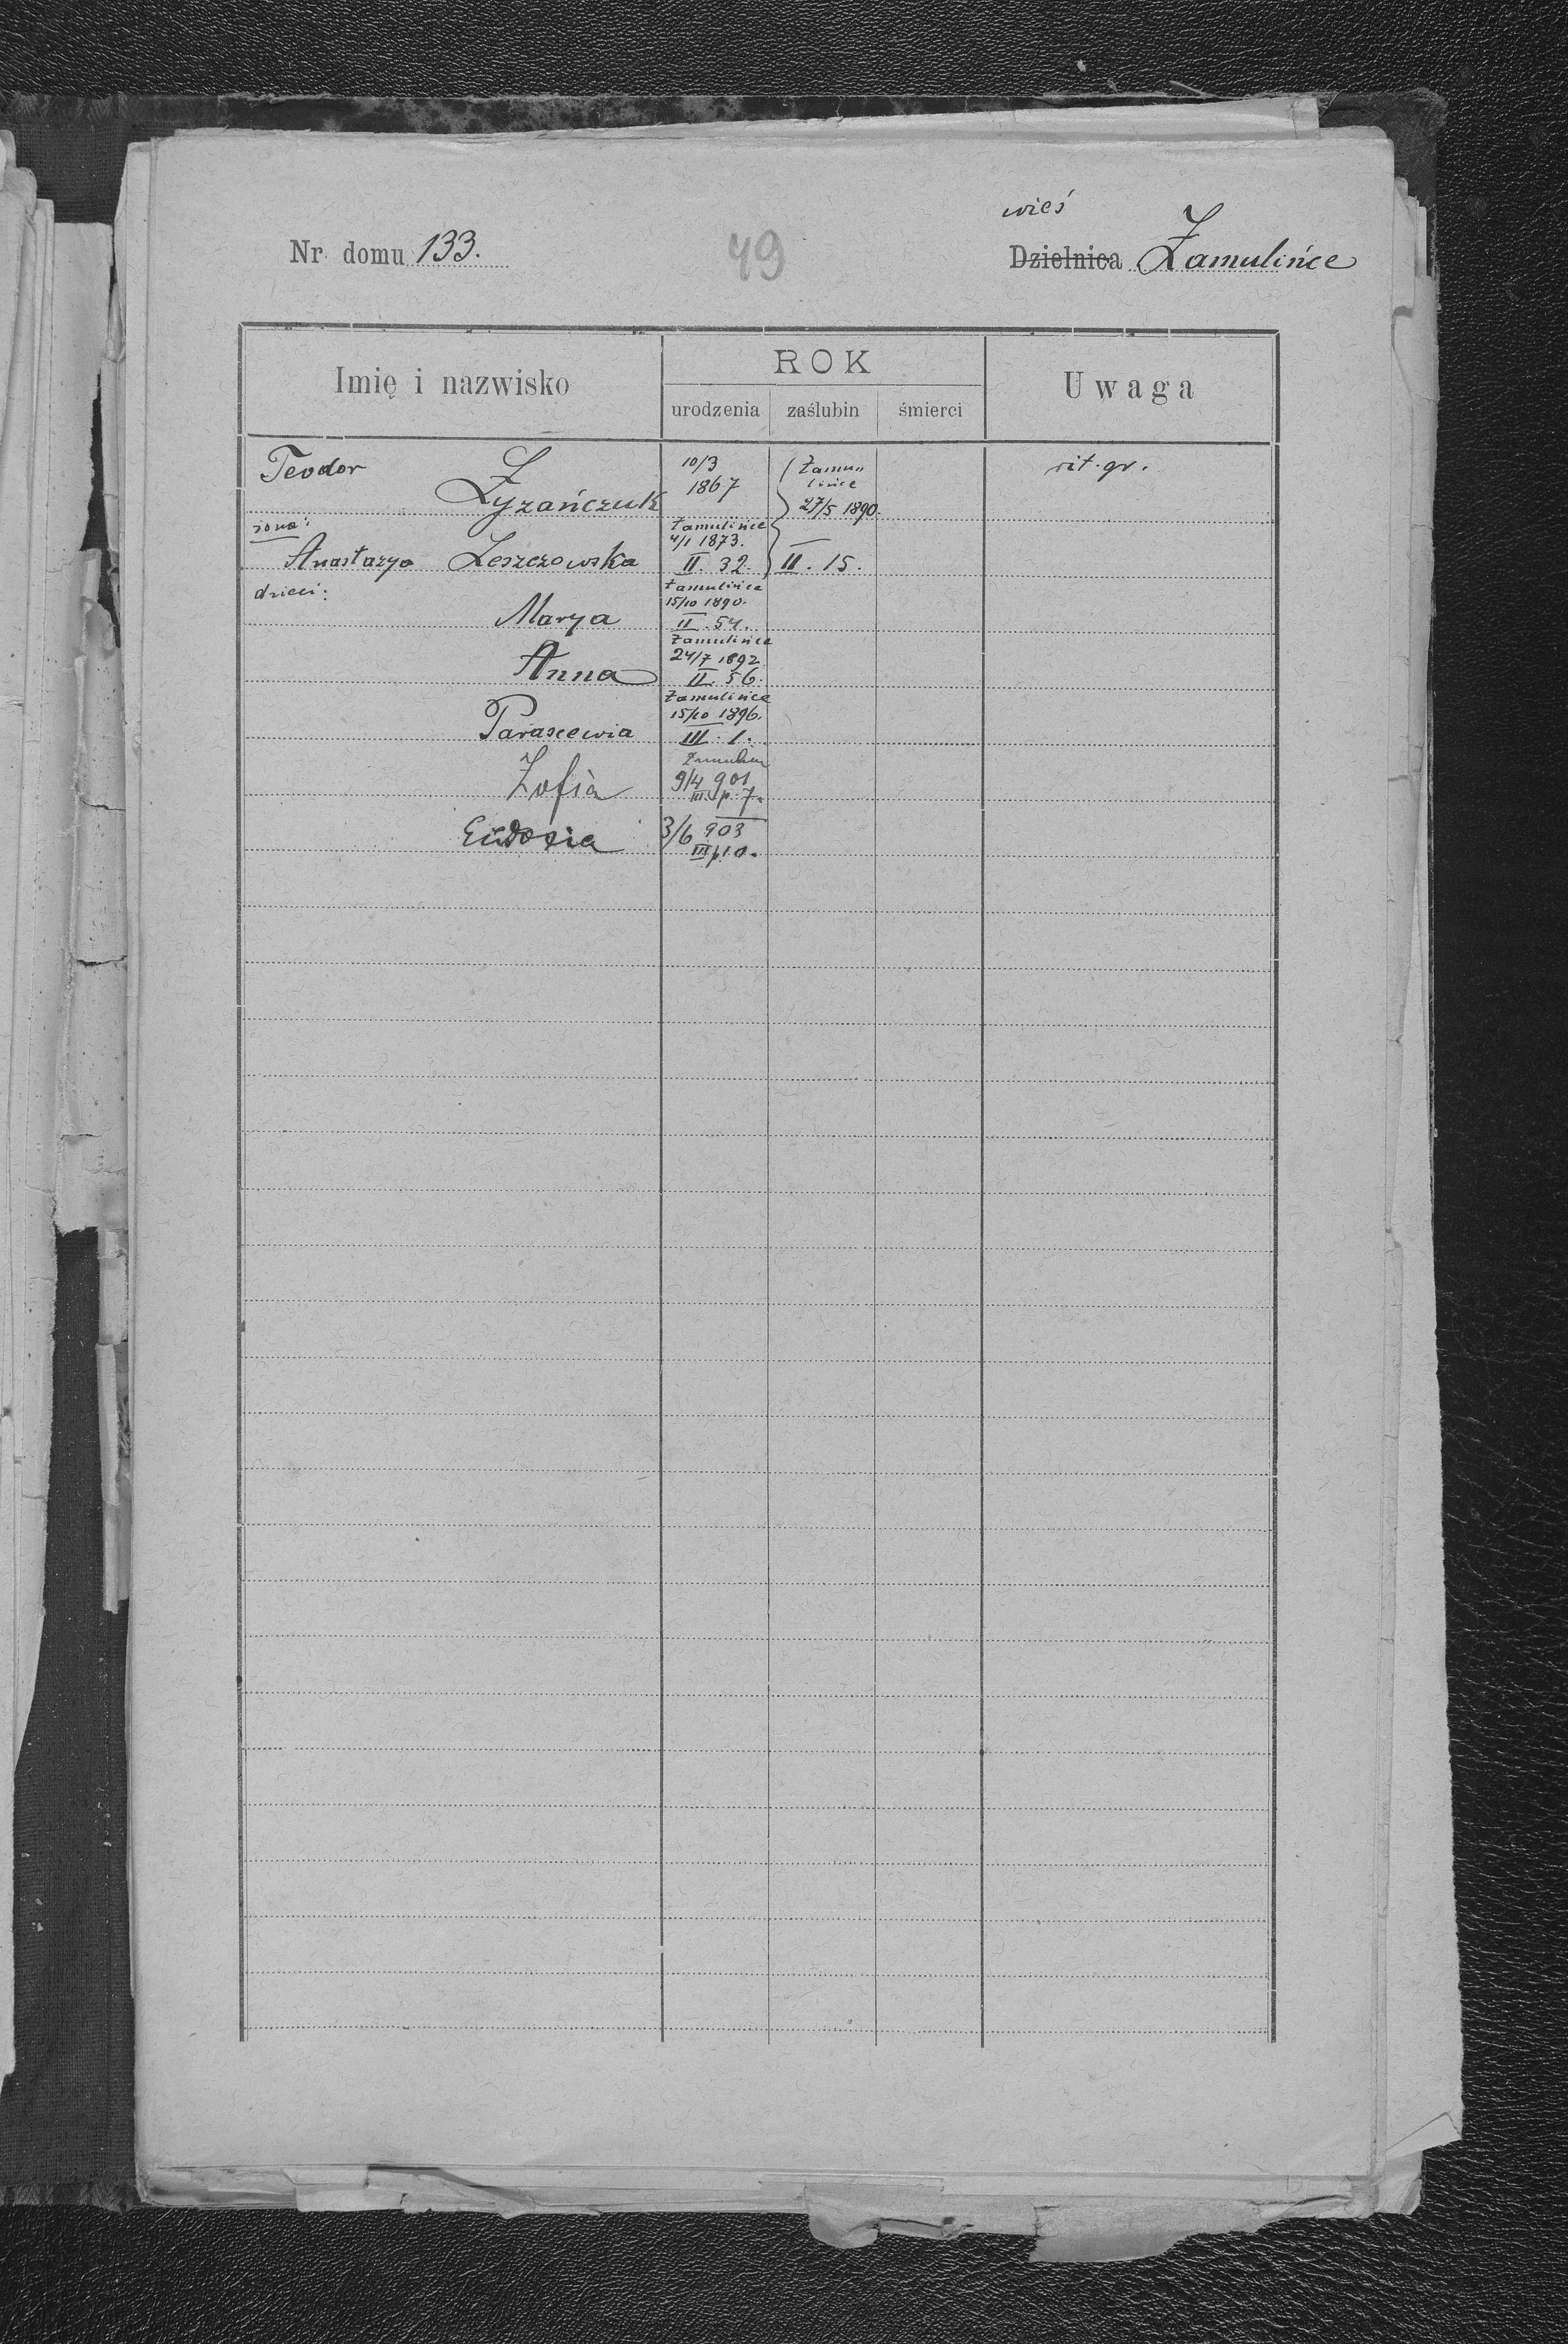 wieś
Nr. domu 133. 49 Dzielnica Zamulińce
Imię i nazwisko ROK Uwaga
urodzenia zaślubin śmierci
Teodor 10/3 Zamu„ rit. gr.
Zyzańczuk 1867 lińce
27/5 1890.
żona: Zamulińce
4/1 1873.
Anastazya Leszczowska II. 32. II. 15.
dzieci: Zamulińce
15/10 1890.
Marya II. 54.
Zamulińce
24/7 1892
Anna II. 56.
Zamulińce
15/10 1896.
Parascewia III. 1.
Zofia 9/4 901
III p. 7.
Eudosia 3/6 903
III p 10.